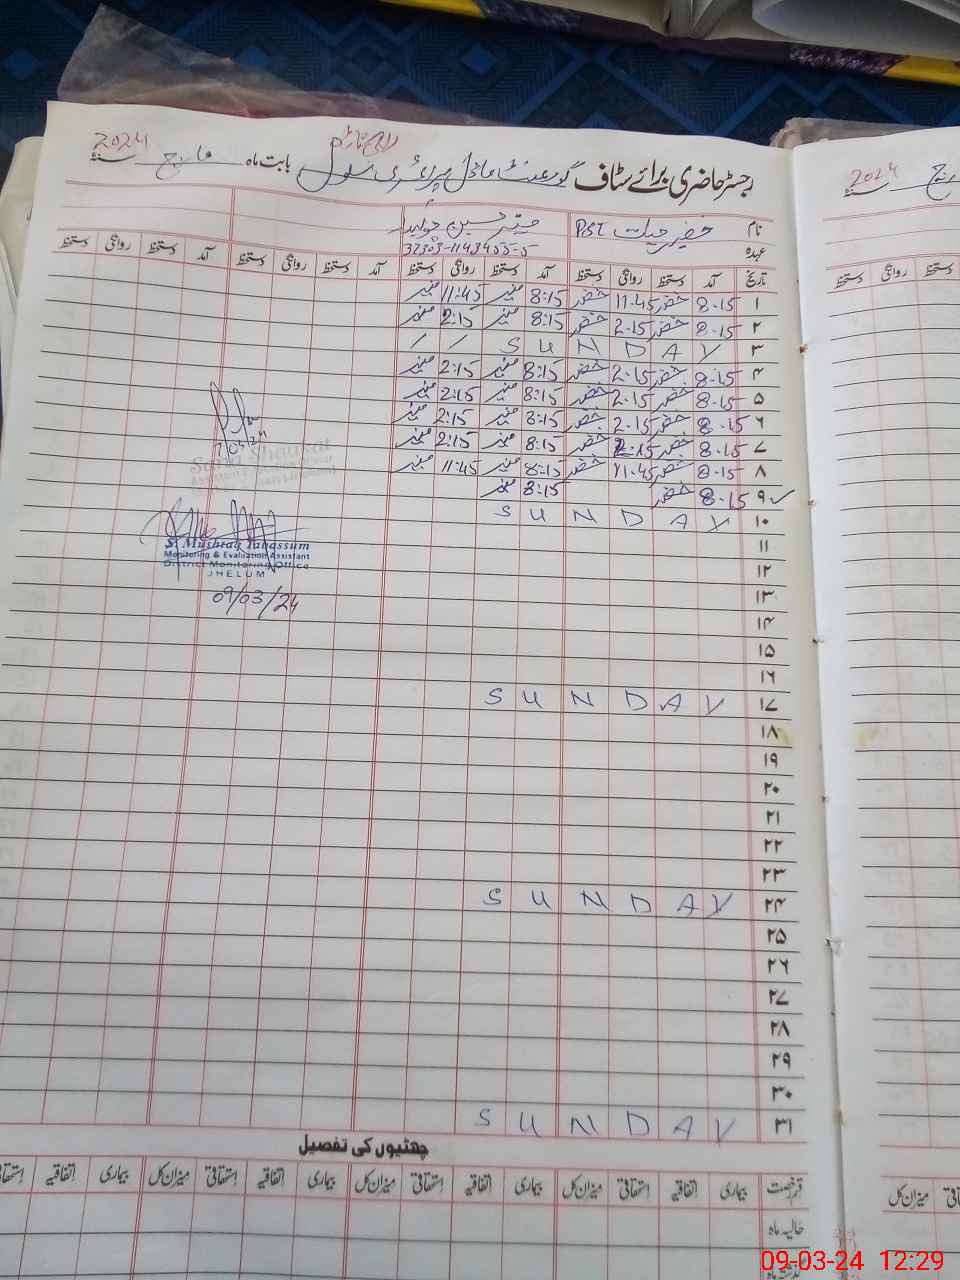 2024
رجسٹر حاضری برائے سٹاف گورنمنٹ ماڈل پرائمری سکول بابت ماہ مارچ 2024 سنہ
نام خضر حیات PST
عہدہ 37303-1143455-5
تاریخ آمد دستخط روانگی دستخط آمد دستخط روانگی دستخط آمد دستخط روانگی دستخط آمد دستخط روانگی دستخط
۱ 8.15 خضر 11.45 خضر 8:15 منیر 11:45 منیر
۲ 8.15 خضر 2.15 خضر 8:15 منیر 2:15 منیر
۳ SUNDAY / /
۴ 8.15 خضر 2.15 خضر 8:15 منیر 2:15 منیر
۵ 8.15 خضر 2.15 خضر 8:15 منیر 2:15 منیر
۶ 8.15 خضر 2.15 خضر 8:15 منیر 2:15 منیر
۷ 8.15 خضر 2.15 خضر 8:15 منیر 2:15 منیر
۸ 8.15 خضر 11.45 خضر 8:15 منیر 11:45 منیر
۹ 8.15 خضر 8:15 منیر
۱۰ SUNDAY
۱۱
۱۲
۱۳
۱۴
۱۵
۱۶
۱۷ SUNDAY
۱۸
۱۹
۲۰
۲۱
۲۲
۲۳
۲۴ SUNDAY
۲۵
۲۶
۲۷
۲۸
۲۹
۳۰
۳۱ SUNDAY
Shaukat
S. Mushtaq Tabassum
Monitoring & Evaluation Assistant
District Monitoring Office
JHELUM
09/03/24
چھٹیوں کی تفصیل
قسم رخصت بیماری اتفاقیہ استحقاقی میزان کل بیماری اتفاقیہ استحقاقی میزان کل بیماری اتفاقیہ استحقاقی میزان کل بیماری اتفاقیہ استحقاقی
حالیہ ماہ
گذشتہ ماہ
2024
سنہ
دستخط روانگی دستخط
میزان کل
09-03-24 12:29